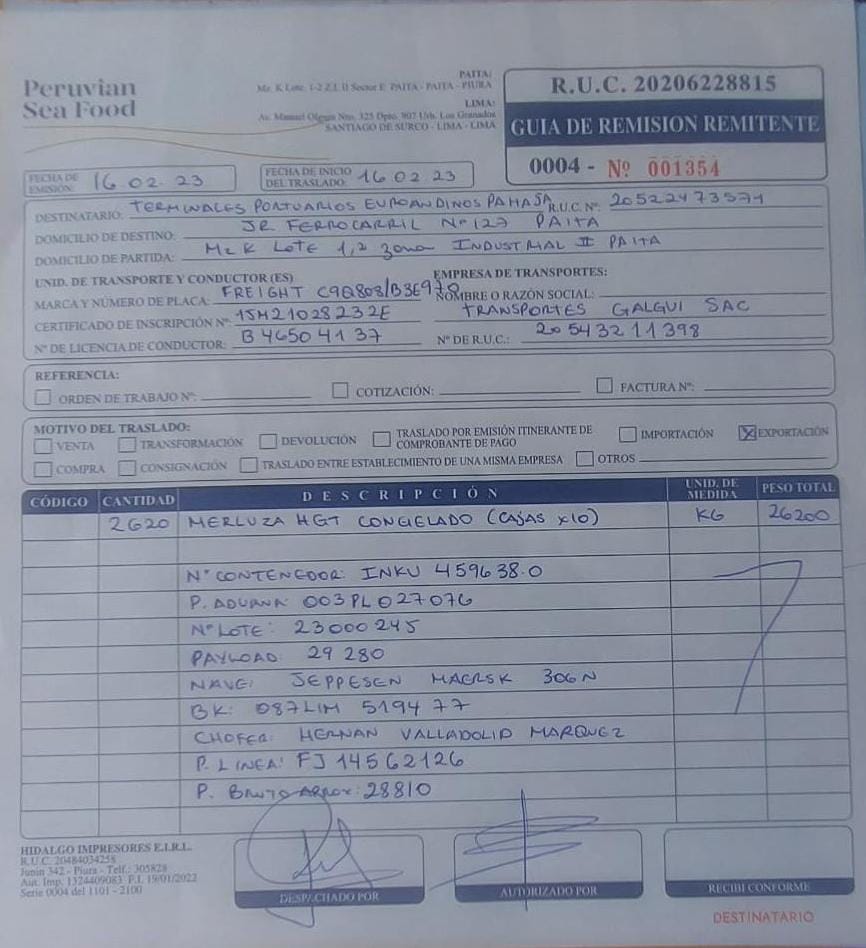 Peruvian
Sea Food
PAITA:
Mz. K Lote. 1-2 Z.I. II Sector E PAITA - PAITA - PIURA
LIMA:
Av. Manuel Olguin Nro. 325 Dpto. 907 Urb. Los Granados
SANTIAGO DE SURCO - LIMA - LIMA
R.U.C. 20206228815
GUIA DE REMISION REMITENTE
0004 - Nº 001354
FECHA DE EMISIÓN: 16.02.23
FECHA DE INICIO DEL TRASLADO: 16.02.23
DESTINATARIO: TERMINALES PORTUARIOS EUROANDINOS PAITA SA R.U.C. Nº: 20522473571
DOMICILIO DE DESTINO: JR. FERROCARRIL Nº 127 PAITA
DOMICILIO DE PARTIDA: Mz K LOTE 1,2 zona INDUSTRIAL II PAITA
UNID. DE TRANSPORTE Y CONDUCTOR (ES) EMPRESA DE TRANSPORTES:
MARCA Y NÚMERO DE PLACA: FREIGHT C9Q808/B3E978 NOMBRE O RAZÓN SOCIAL:
CERTIFICADO DE INSCRIPCIÓN Nº: 15M21028232E TRANSPORTES GALGUI SAC
Nº DE LICENCIA DE CONDUCTOR: B 46504137 Nº DE R.U.C.: 20543211398
REFERENCIA:
ORDEN DE TRABAJO Nº: COTIZACIÓN: FACTURA Nº:
MOTIVO DEL TRASLADO:
VENTA TRANSFORMACIÓN DEVOLUCIÓN TRASLADO POR EMISIÓN ITINERANTE DE COMPROBANTE DE PAGO IMPORTACIÓN EXPORTACIÓN
COMPRA CONSIGNACIÓN TRASLADO ENTRE ESTABLECIMIENTO DE UNA MISMA EMPRESA OTROS
CÓDIGO CANTIDAD DESCRIPCIÓN UNID. DE MEDIDA PESO TOTAL
2620 MERLUZA HGT CONGELADO (CAJAS x10) KG 26200
Nº CONTENEDOR: INKU 459638.0
P. ADUANA: 003PL027076
Nº LOTE: 23000245
PAYLOAD: 29 280
NAVE: JEPPESEN MAERSK 306N
BK: 087LIM 519477
CHOFER: HERNAN VALLADOLID MARQUEZ
P. LINEA: FJ 14562126
P. Bruto Aprox: 28810
HIDALGO IMPRESORES E.I.R.L.
R.U.C. 20484034258
Junín 342 - Piura - Telf.: 305828
Aut. Imp. 1324409083 F.I. 19/01/2022
Serie 0004 del 1101 - 2100
DESPACHADO POR
AUTORIZADO POR
RECIBI CONFORME
DESTINATARIO